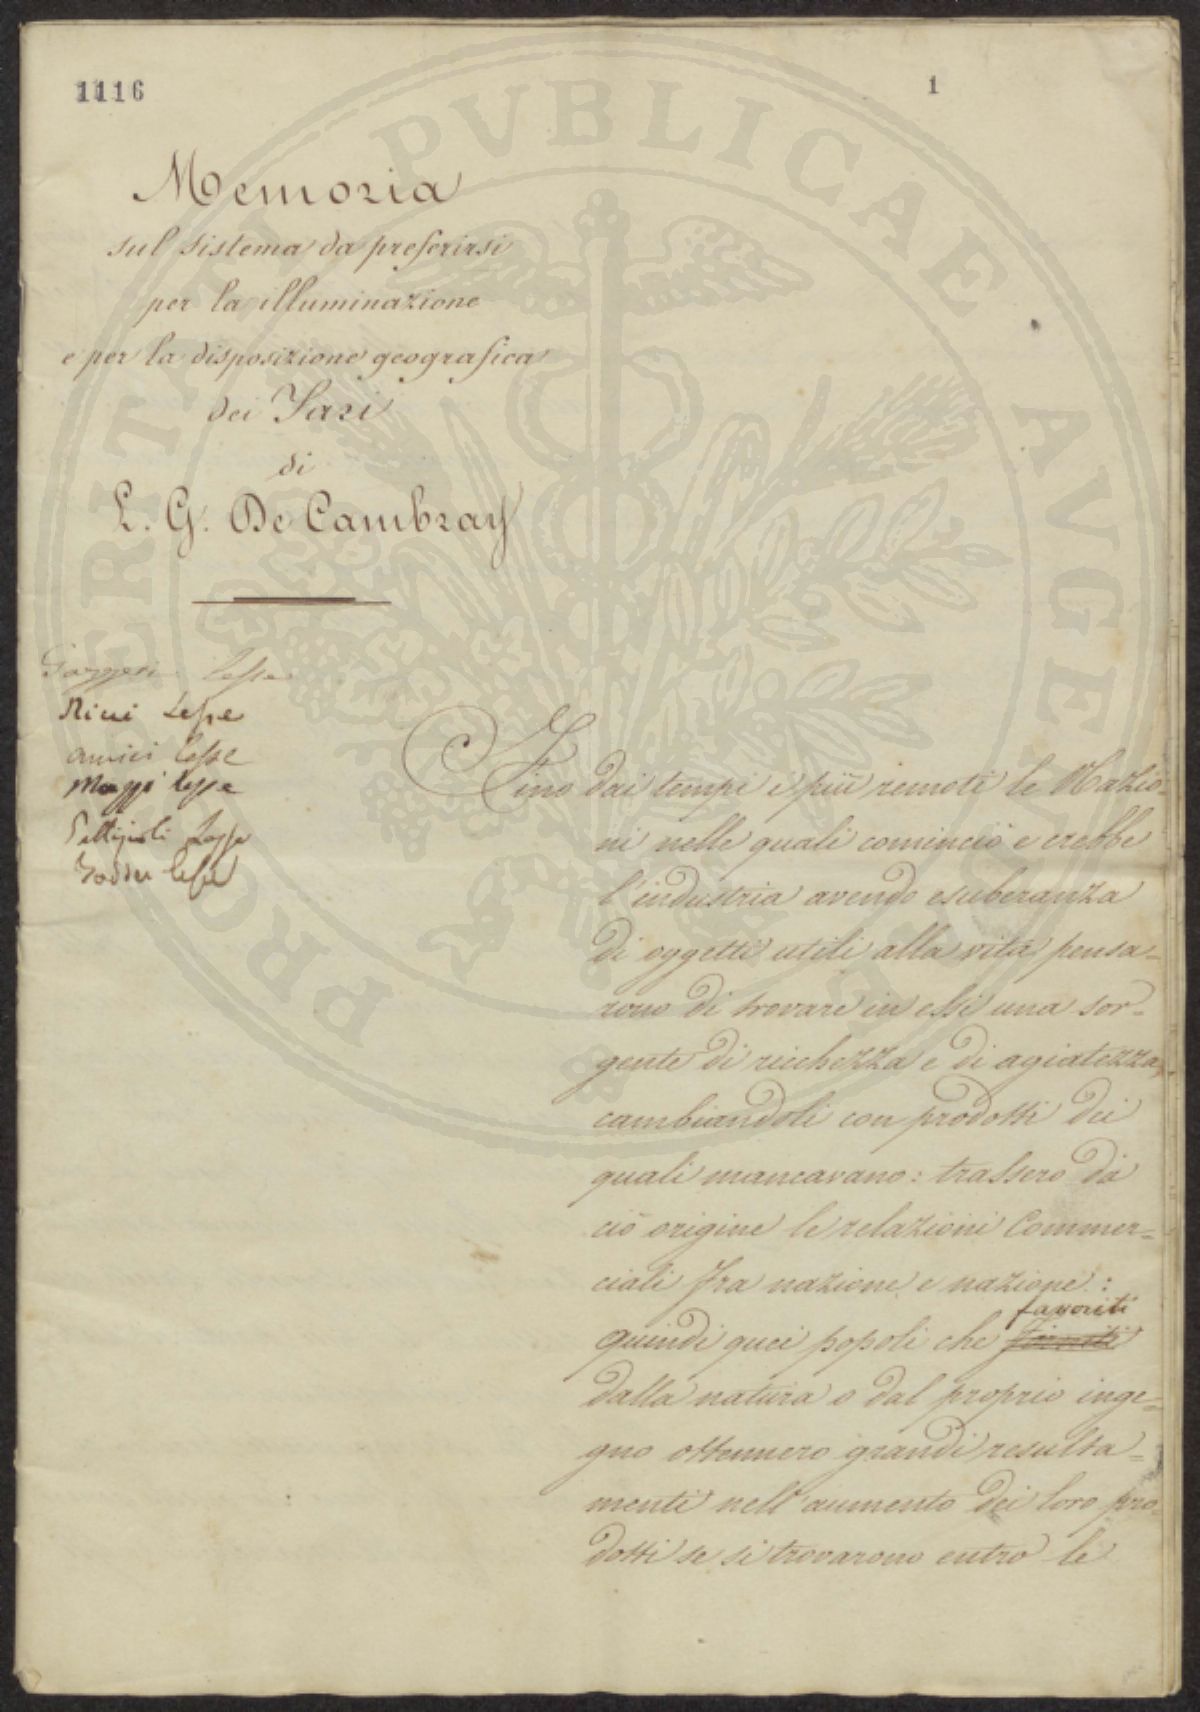 1116
1
Memoria
sul sistema da preferirsi
per la illuminazione
e per la disposizione geografica
dei Fari
di
L. G. De Cambray
Gazzeri Lesse
Ricci Lesse
Amici Lesse
Mazzi Lesse
Lesse
Taddei Lesse
Fino dai tempi i più remoti le Nazio-
ni nelle quali cominciò e crebbe
l'industria avendo esuberanza
di oggetti utili alla vita pensa-
rono di trovare in essi una sor-
gente di ricchezza e di agiatezza
cambiandoli con prodotti dei
quali mancavano: trassero da
ciò origine le relazioni Commer-
ciali fra nazione e nazione:
favoriti
quindi quei popoli che
dalla natura o dal proprio inge-
gno ottennero grandi resulta-
menti nell'aumento dei loro pro-
dotti se si trovarono entro le
PROSPERITATI PVBLICAE AVGENDAE